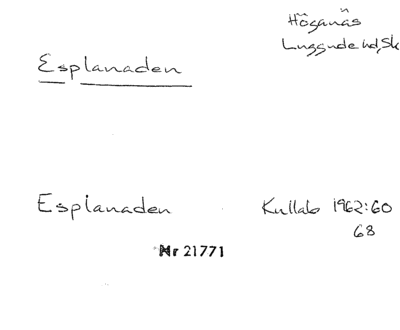 Höganäs
Luggude hd, Sk
Esplanaden
Esplanaden Kullabo 1962:60
68
Nr 21771